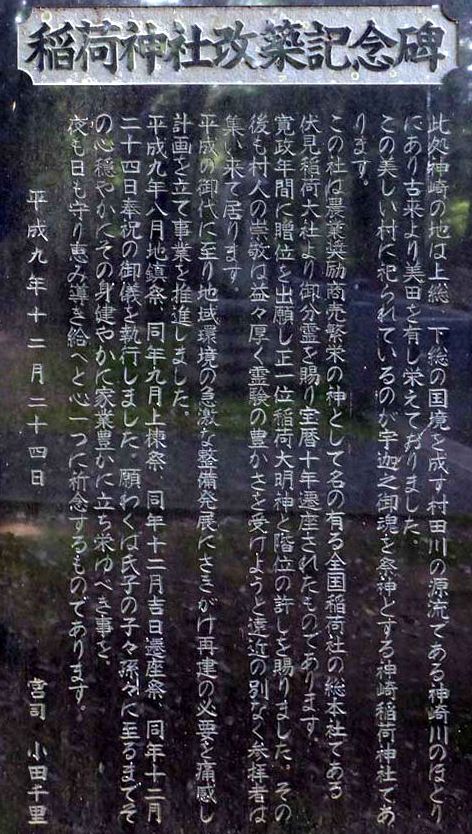 稲荷神社改築記念碑
此処神崎の地は上総、下総の国境を成す村田川の源流である神崎川のほとり
にあり古来より美田を有し栄えておりました。
この美しい村に祀られているのが宇迦之御魂を祭神とする神崎稲荷神社であ
ります。
この社は農業奨励商売繁栄の神として名の有る全国稲荷社の総本社である
伏見稲荷大社より御分霊を賜り宝暦十年遷座されたものであります。
寛政年間に贈位を出願し正一位稲荷大明神と階位の許しを賜りました。その
後も村人の崇敬は益々厚く霊験の豊かさを受けようと遠近の別なく参拝者は
集い来て居ります。
平成の御代に至り地域環境の急激な整備発展にさきがけ再建の必要を痛感し
計画を立て事業を推進しました。
平成九年八月地鎮祭、同年九月上棟祭、同年十二月吉日遷座祭、同年十二月
二十四日奉祝の御儀を執行しました。願わくは氏子の子々孫々に至るまでそ
の心穏やかにその身健やかに家業豊かに立ち栄ゆべき事を、
夜も日も守り恵み導き給へと心一つに祈念するものであります。
平成九年十二月二十四日
宮司 小田千里